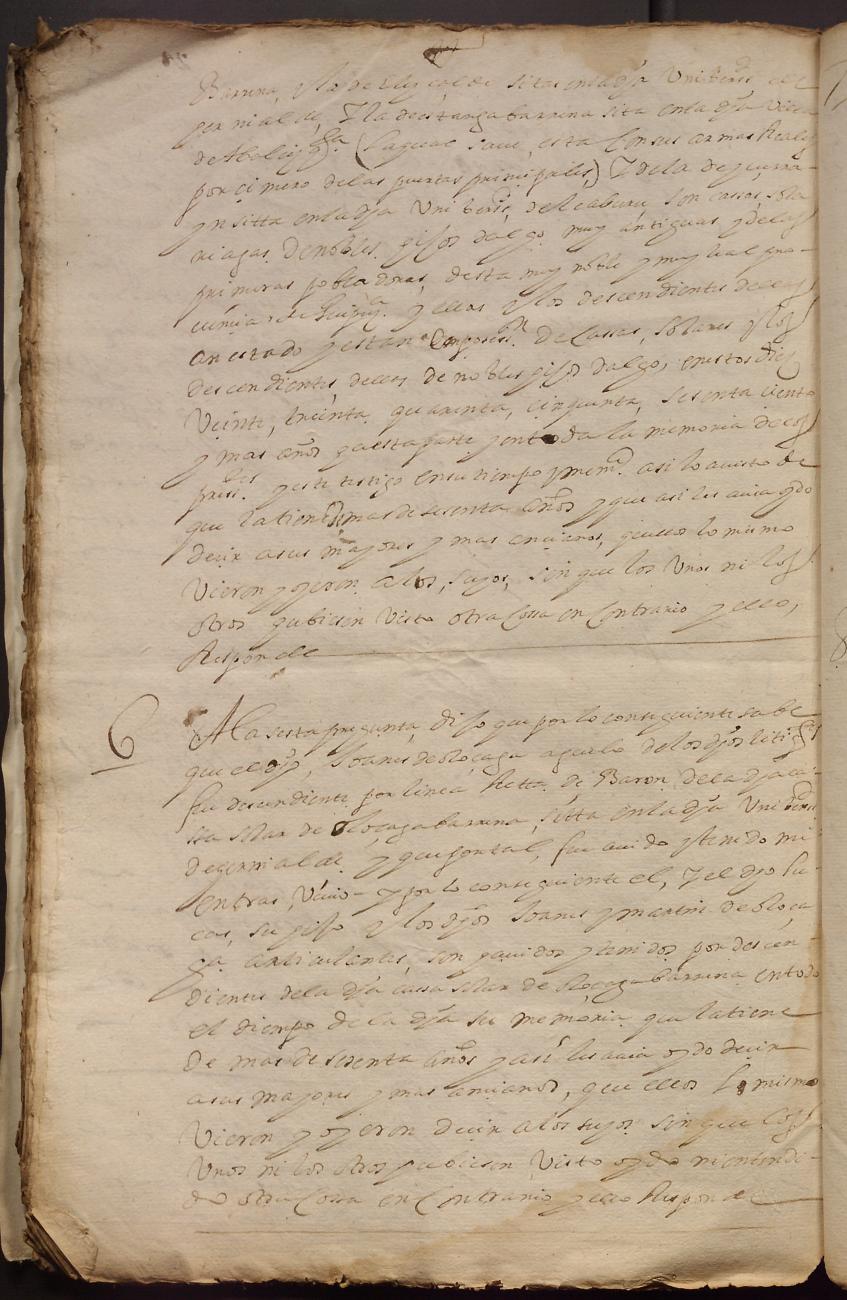 Barrena, y la de Elycalde sitas en la dha Unibersd de
gerrialde, Y la de estanga barrena sita en la dha Villa
de Abalcizqta (la qual saue esta Con sus armas Reales
por cimero de las puertas prinçipales) Y de la de
yn sitta en la dha Unibersd, de Leaburu son cassas sola
riegas de nobles hijos dalgo muy antiguas y de las
primeras pobladoras, desta muy noble y muy leal pro-
uincia de Guipuza y ellas y los descendientes de ellas
an estado y estan en posesion De Cassas, solares y los
descendientes, de ellas de nobles hijos dalgo, en estos diez
Veinte, treinta, quarenta, cinquenta, sesenta, ciento
y mas años a esta parte y en toda la memoria de los
press. y este testigo en su tiempo y mema asi lo a uisto de
que la tiene de mas de sesenta años y que asi les auia oydo
decir a sus mayores y mas ancianos, que ellos lo mismo
Vieron y oyeron a los suyos, sin que los Unos ni los
otros hubiesen Visto otra Cossa en Contrario y ello,
Responde
6 A la sesta pregunta, dijo que por lo consiguiente sabe
que el dho, Joanes de olocaga aguelo de los dhos litigtes
fue descendiente por linea Recta de Baron de la dha ca-
sa solar de olocaga barrena, sitta en la dha Unibersd
de gerrialde y que por tal, fue auido y tenido mi
entras Viuio- y por lo consiguiente el, Y el dho Lu-
cas, su hijo y los dhos Joanes y martin de oloca
ga articulantes, son hauidos y tenidos por descen-
dientes de la dha cassa solar de olocaga barrena en todo
el tiempo de la dha su memoria que la tiene
De mas de sesenta años y asi les auia oydo decir
a sus mayores y mas ancianos, que ellos lo mismo
Vieron y oyeron decir a los suyos sin que los
Unos ni los otros hubiesen Visto oydo ni entendi-
do otra Cossa en Contrario y ello Responde